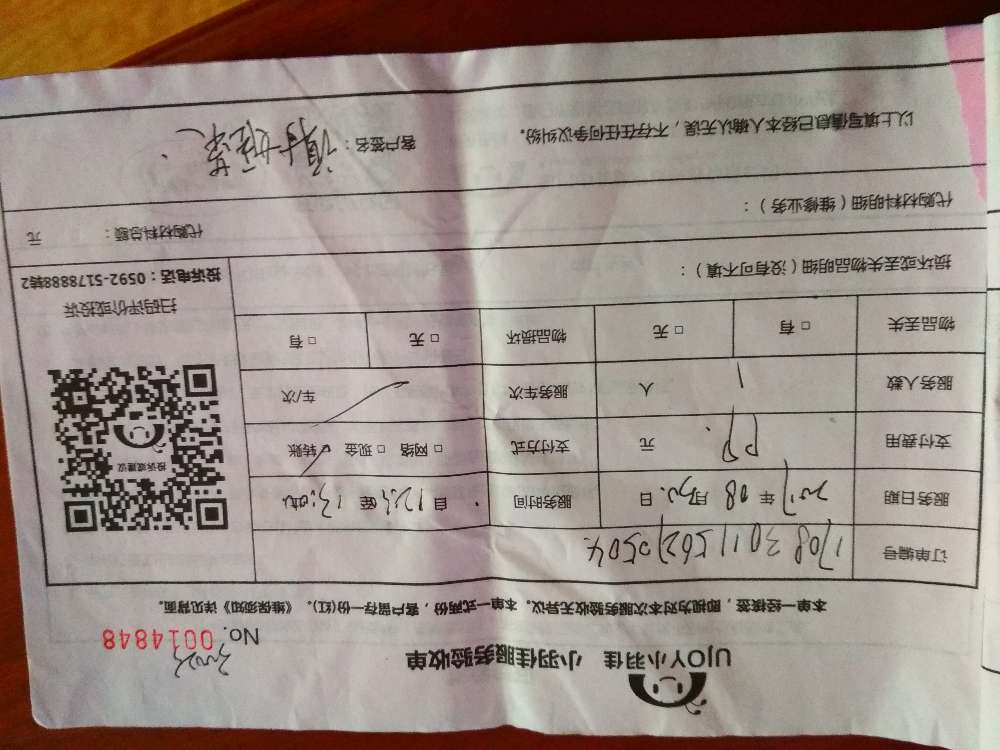 UJOY小羽佳 小羽佳服务验收单
No. 0014848
本单一经接签，即视为对本次服务验收无异议。本单一式两份，客户留存一份(红)。《维保须知》详见背面。
订单编号
服务日期 年 08 月 日 服务时间 自 至
支付费用 元 支付方式 □ 网络 □ 现金 □ 转账
服务人数 1 人 服务车次 车/次
物品丢失 □ 有 □ 无 物品损坏 □ 无 □ 有
投诉或建议
扫码评价或投诉
投诉电话：0592-5178888转2
损坏或丢失物品明细（没有可不填）：
代购材料明细（维修业务）：
代购材料总额： 元
以上填写信息已经本人确认无误，不存在任何争议纠纷。 客户签名：